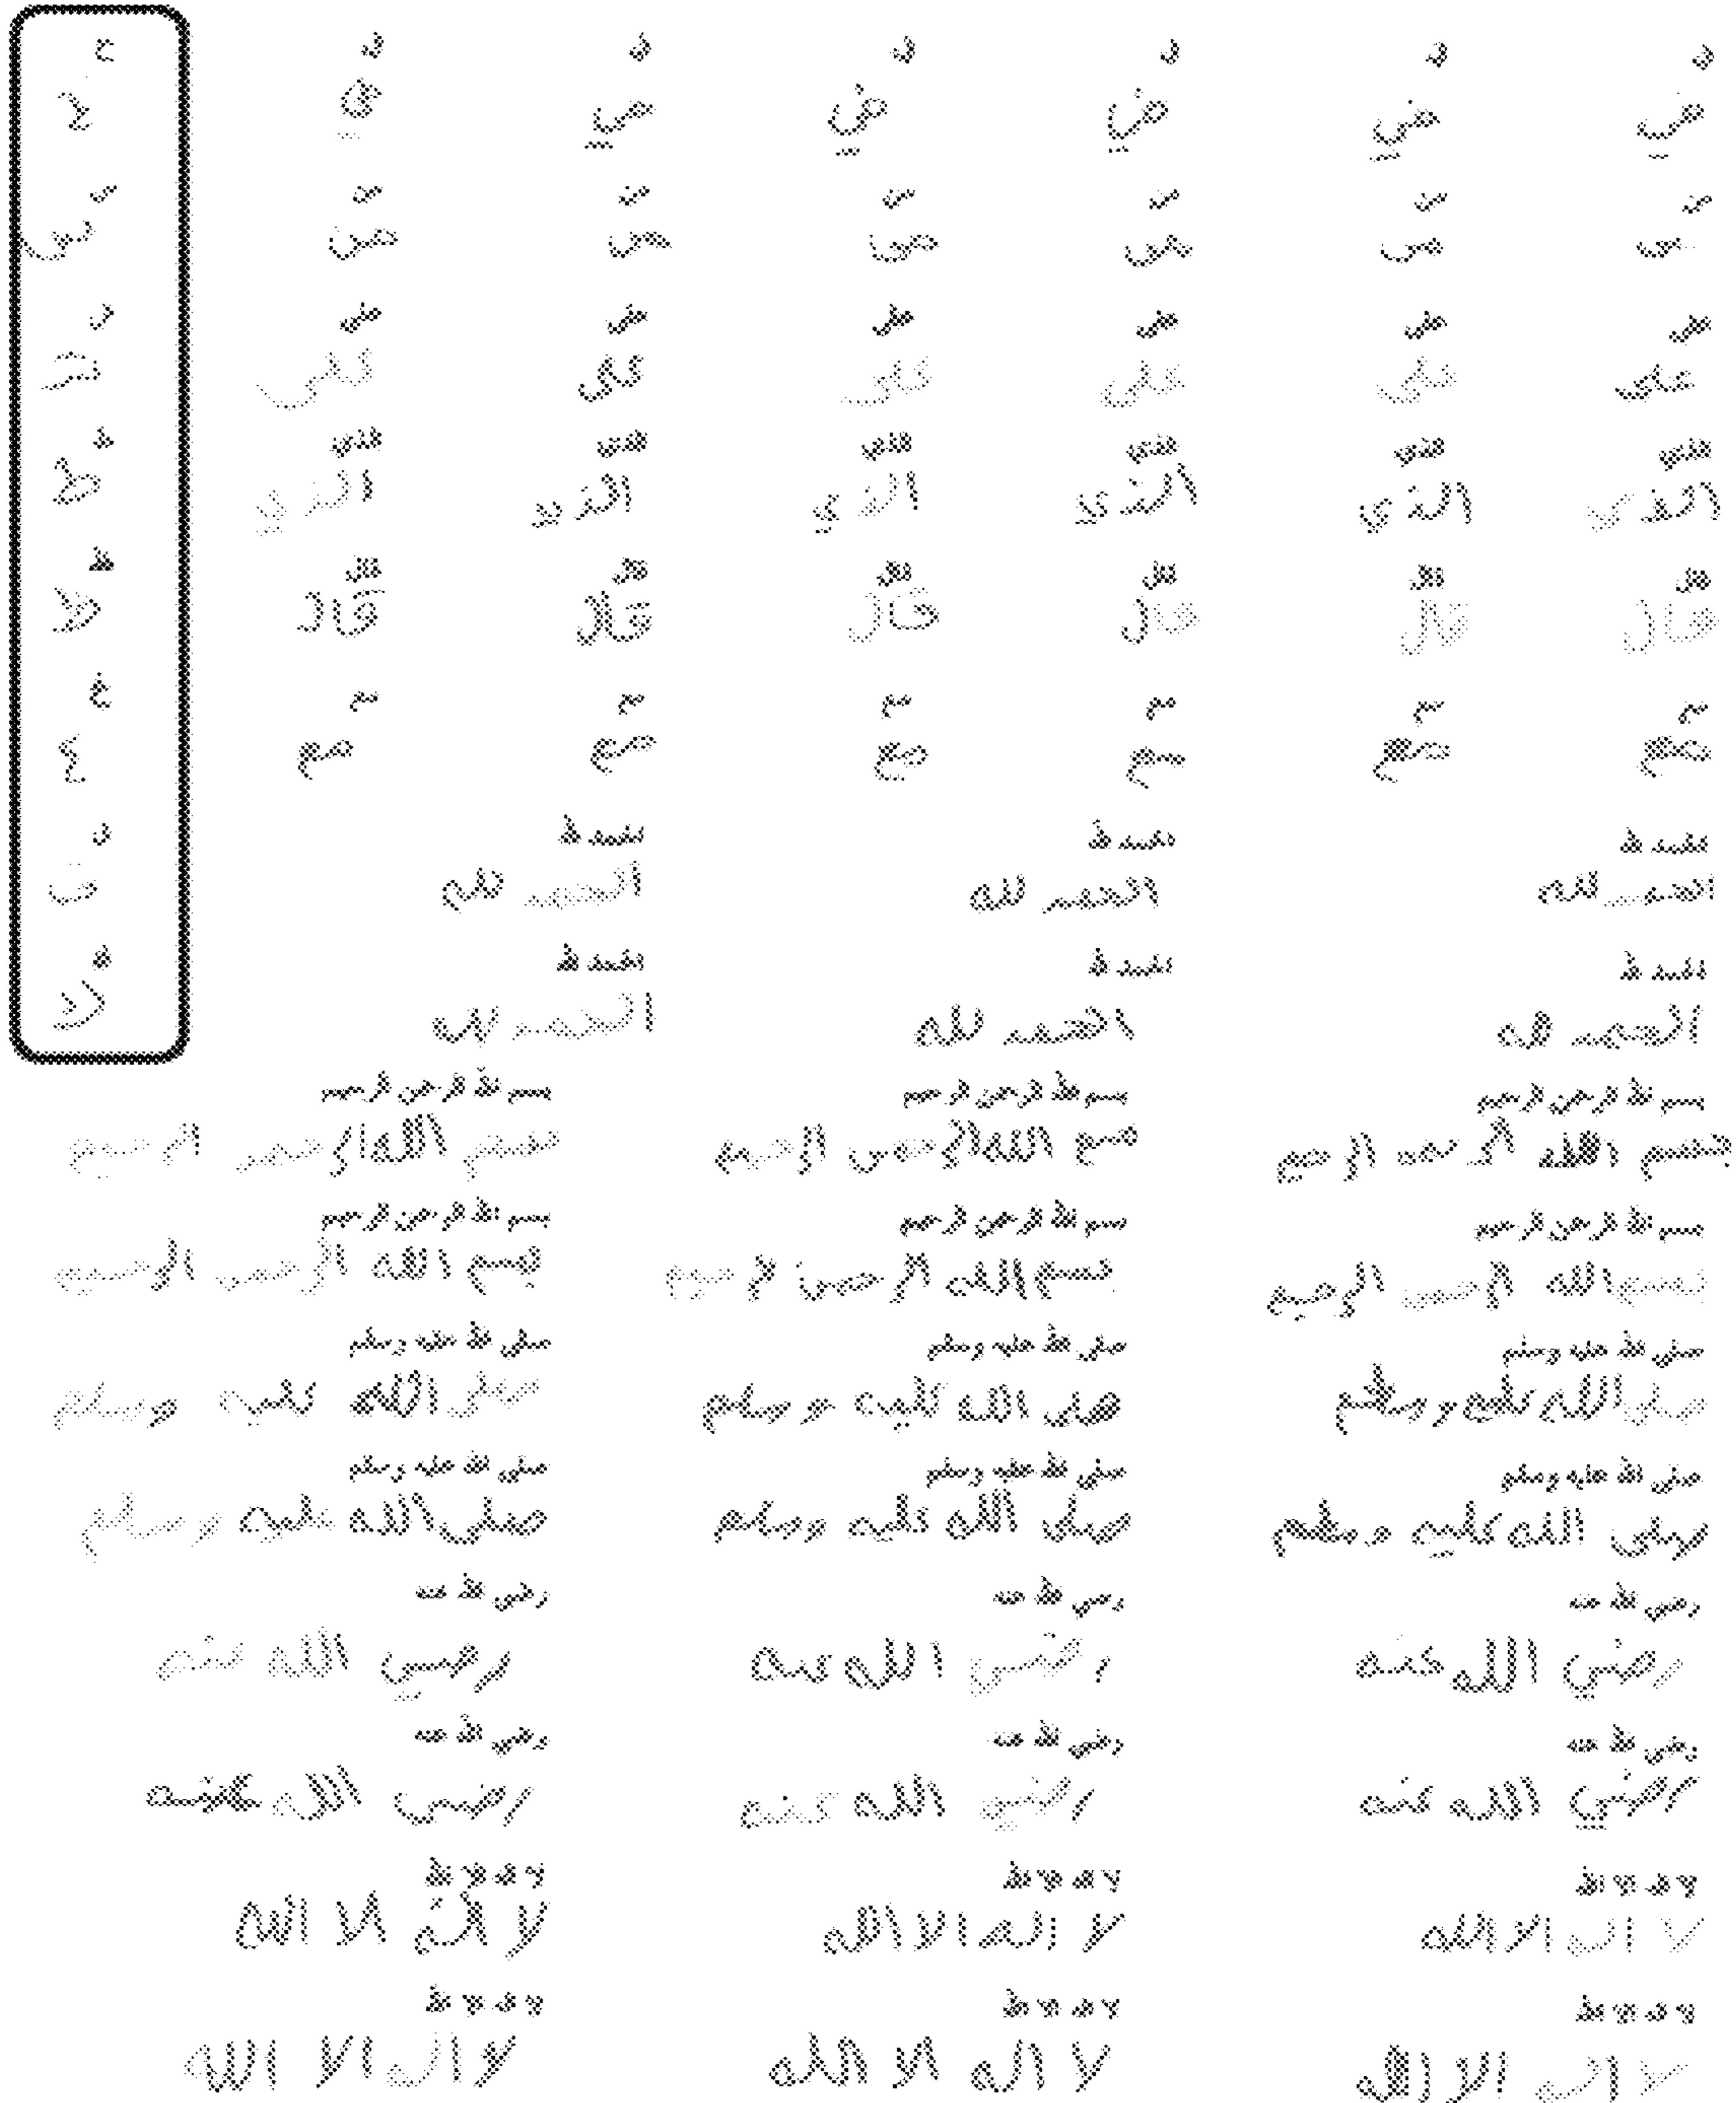 في في في في في في ح
في في في في في في
من من من من من من س
من من من من من من س
على على على على على على
على على على على على على
الذي الذي الذي الذي الذي الذي ط
الذي الذي الذي الذي الذي الذي ط
قال قال قال قال قال قال
قال قال قال قال قال قال
مع مع مع مع مع مع
مع مع مع مع مع مع ع
الحمد لله الحمد لله الحمد لله
الحمد لله الحمد لله الحمد لله
الحمد لله الحمد لله الحمد لله
الحمد لله الحمد لله الحمد لله
بسم الله الرحمن الرحيم بسم الله الرحمن الرحيم بسم الله الرحمن الرحيم
بسم الله الرحمن الرحيم بسم الله الرحمن الرحيم بسم الله الرحمن الرحيم
بسم الله الرحمن الرحيم بسم الله الرحمن الرحيم بسم الله الرحمن الرحيم
بسم الله الرحمن الرحيم بسم الله الرحمن الرحيم بسم الله الرحمن الرحيم
صلى الله عليه وسلم صلى الله عليه وسلم صلى الله عليه وسلم
صلى الله عليه وسلم صلى الله عليه وسلم صلى الله عليه وسلم
صلى الله عليه وسلم صلى الله عليه وسلم صلى الله عليه وسلم
صلى الله عليه وسلم صلى الله عليه وسلم صلى الله عليه وسلم
رضي الله عنه رضي الله عنه رضي الله عنه
رضي الله عنه رضي الله عنه رضي الله عنه
رضي الله عنه رضي الله عنه رضي الله عنه
رضي الله عنه رضي الله عنه رضي الله عنه
لا اله الا الله لا اله الا الله لا اله الا الله
لا اله الا الله لا اله الا الله لا اله الا الله
لا اله الا الله لا اله الا الله لا اله الا الله
لا اله الا الله لا اله الا الله لا اله الا الله